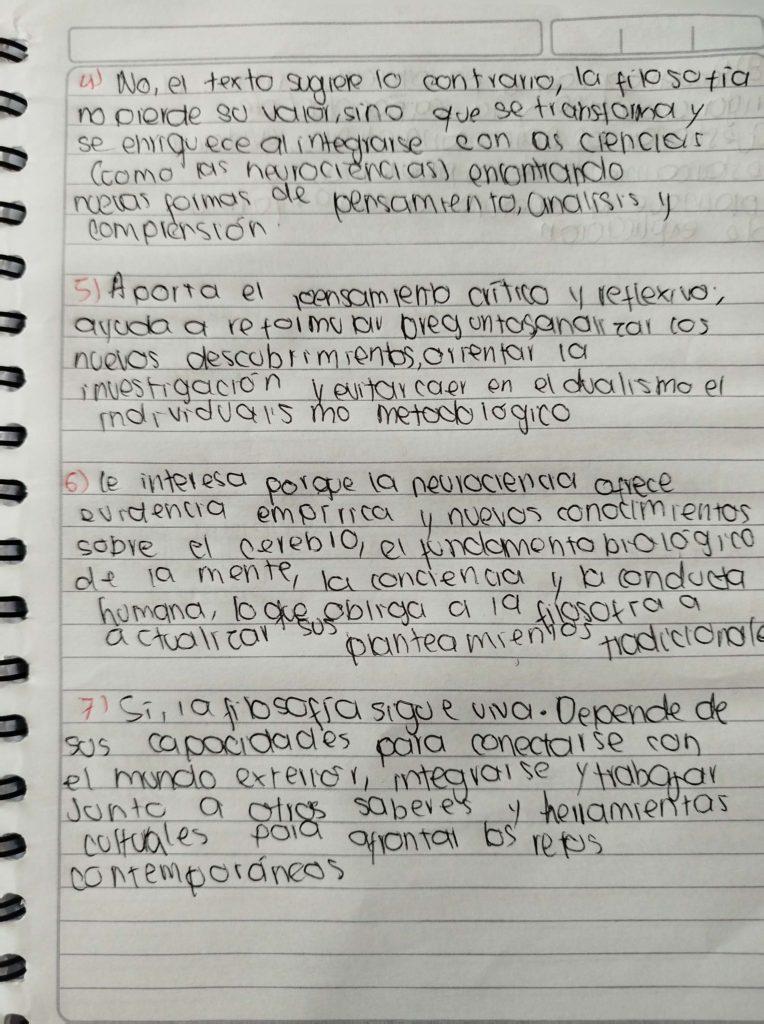 4) No, el texto sugiere lo contrario, la filosofía
no pierde su valor, sino que se transforma y
se enriquece al integrarse con as ciencias
(como las neurociencias) encontrando
nuevas formas de pensamiento, análisis y
comprensión.
5) Aporta el pensamiento crítico y reflexivo;
ayuda a reformular preguntas, analizar los
nuevos descubrimientos, orientar la
investigación y evitar caer en el dualismo el
individualismo metodológico
6) le interesa porque la neurociencia ofrece
evidencia empírica y nuevos conocimientos
sobre el cerebro, el fundamento biológico
de la mente, la conciencia y la conducta
humana, lo que obliga a la filosofía a
actualizar sus planteamientos tradicionale
7) Sí, la filosofía sigue viva. Depende de
sus capacidades para conectarse con
el mundo exterior, integrarse y trabajar
Junto a otros saberes y herramientas
cultuales para afrontar los retos
contemporáneos